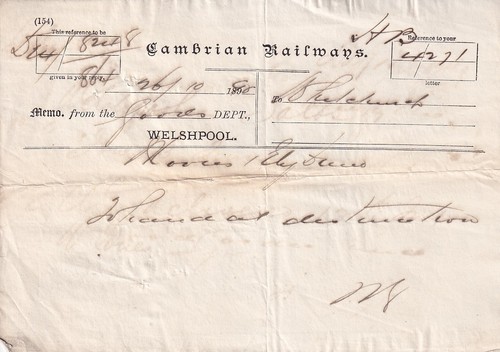 (154)
This reference to be
8248
given in your reply.
Cambrian Railways.
Reference to your
4271
letter
26/10 1890
Memo. from the Goods DEPT.,
WELSHPOOL.
To Whitchurch
To hand at destination